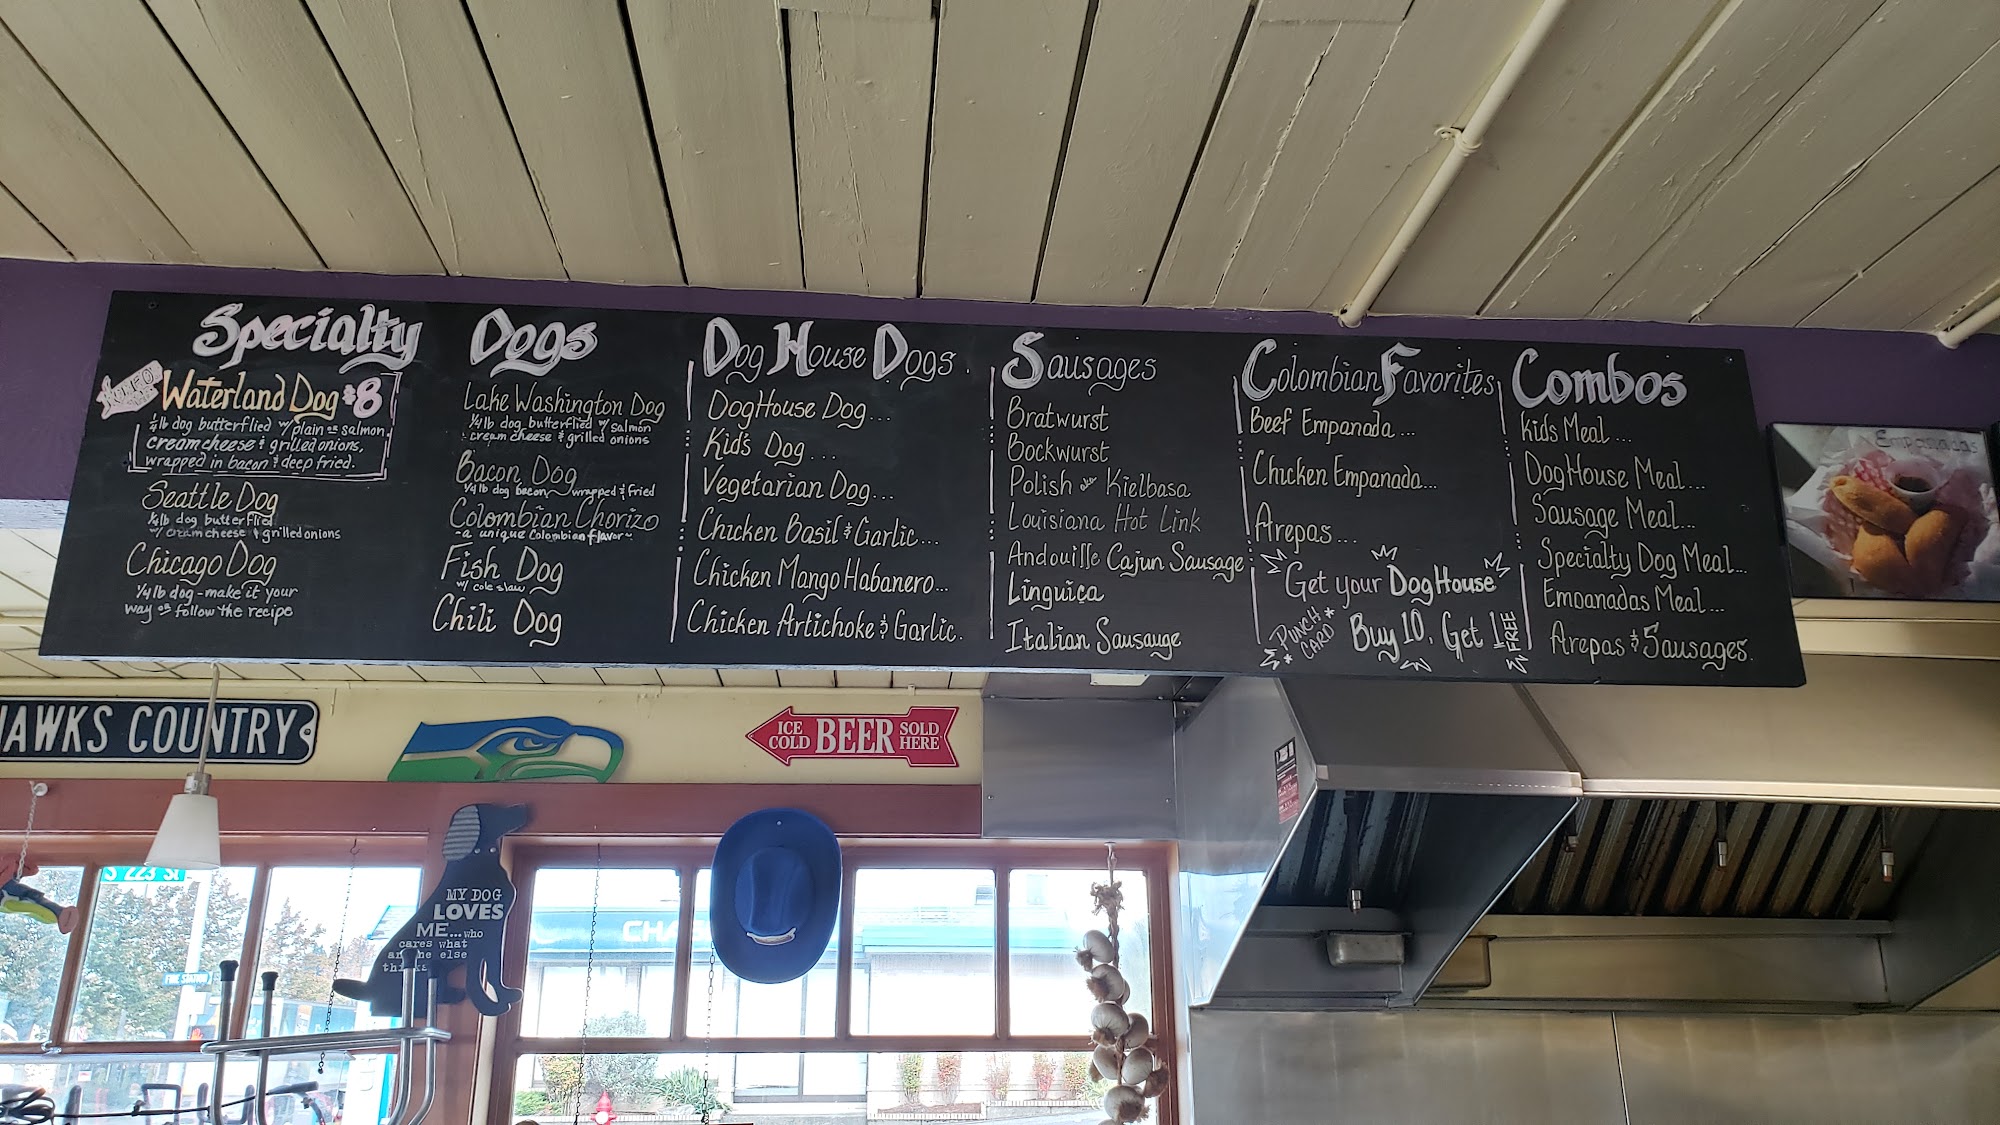 Specialty Dogs
Waterland Dog $8
1/4 lb dog butterflied w/ plain or salmon
cream cheese & grilled onions,
wrapped in bacon & deep fried.
Seattle Dog
1/4 lb dog butterflied
w/ cream cheese & grilled onions
Chicago Dog
1/4 lb dog - make it your
way or follow the recipe
Lake Washington Dog
1/4 lb dog butterflied w/ salmon
cream cheese & grilled onions
Bacon Dog
1/4 lb dog bacon wrapped & fried
Colombian Chorizo
~a unique Colombian flavor~
Fish Dog
w/ cole slaw
Chili Dog
Dog House Dogs
DogHouse Dog...
Kid's Dog...
Vegetarian Dog...
Chicken Basil & Garlic...
Chicken Mango Habanero...
Chicken Artichoke & Garlic.
Sausages
Bratwurst
Bockwurst
Polish aka Kielbasa
Louisiana Hot Link
Andouille Cajun Sausage
Linguiça
Italian Sausauge
Colombian Favorites
Beef Empanada...
Chicken Empanada...
Arepas...
Get your DogHouse
PUNCH CARD
Buy 10, Get 1 FREE
Combos
Kids Meal...
DogHouse Meal...
Sausage Meal...
Specialty Dog Meal...
Empanadas Meal...
Arepas & Sausages.
Empanadas
HAWKS COUNTRY
ICE COLD BEER SOLD HERE
S 223 St
MY DOG
LOVES
ME...who
cares what
else
CHA